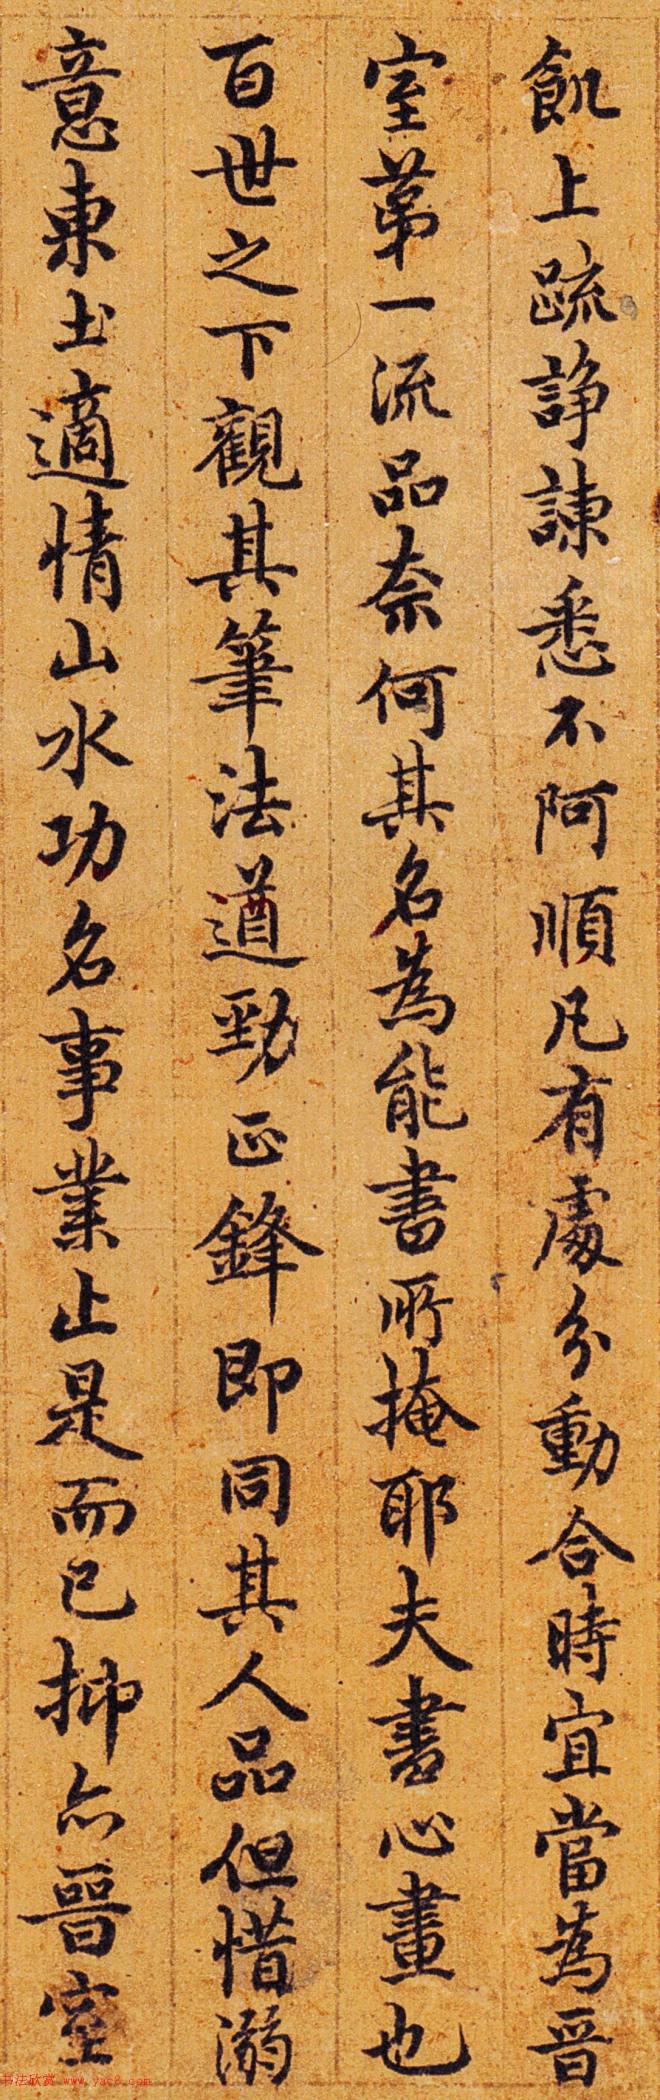 飢上疏諍諫悉不阿順凡有處分動合時宜當為晋
室苐一流品柰何其名為能書所掩耶夫書心畫也
百世之下觀其筆法遒勁正鋒即同其人品但惜溺
意東土適情山水功名事業止是而已抑亦晉室
书法欣赏 www.yac8.com